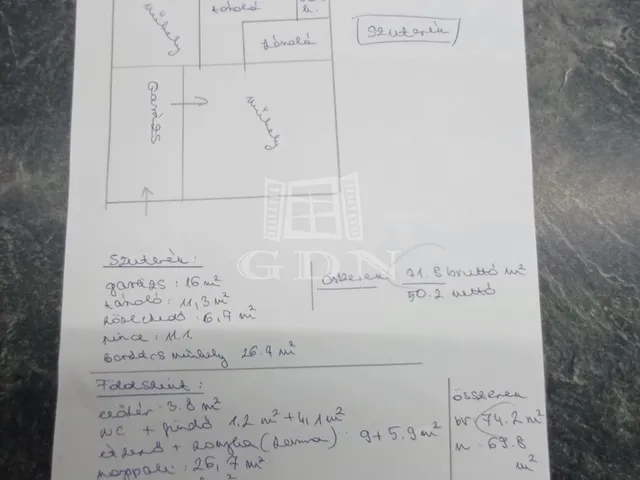 műhely
tároló
tároló
Szuterén
Garázs
műhely
GDN
Szuterén:
garázs : 16 m²
tároló : 11,3 m²
közlekedő : 6,7 m²
pince : 11.1.
műhely 26.7 m²
összesen 71.8 bruttó m²
50.2 nettó
Földszint :
előtér : 3.8 m²
WC + fürdő 1,2 m² + 4,1 m²
étkező + konyha (kamra) : 9 + 5.9 m²
nappali : 26,7 m²
összesen
br : 74.2 m²
n : 69.8
m²